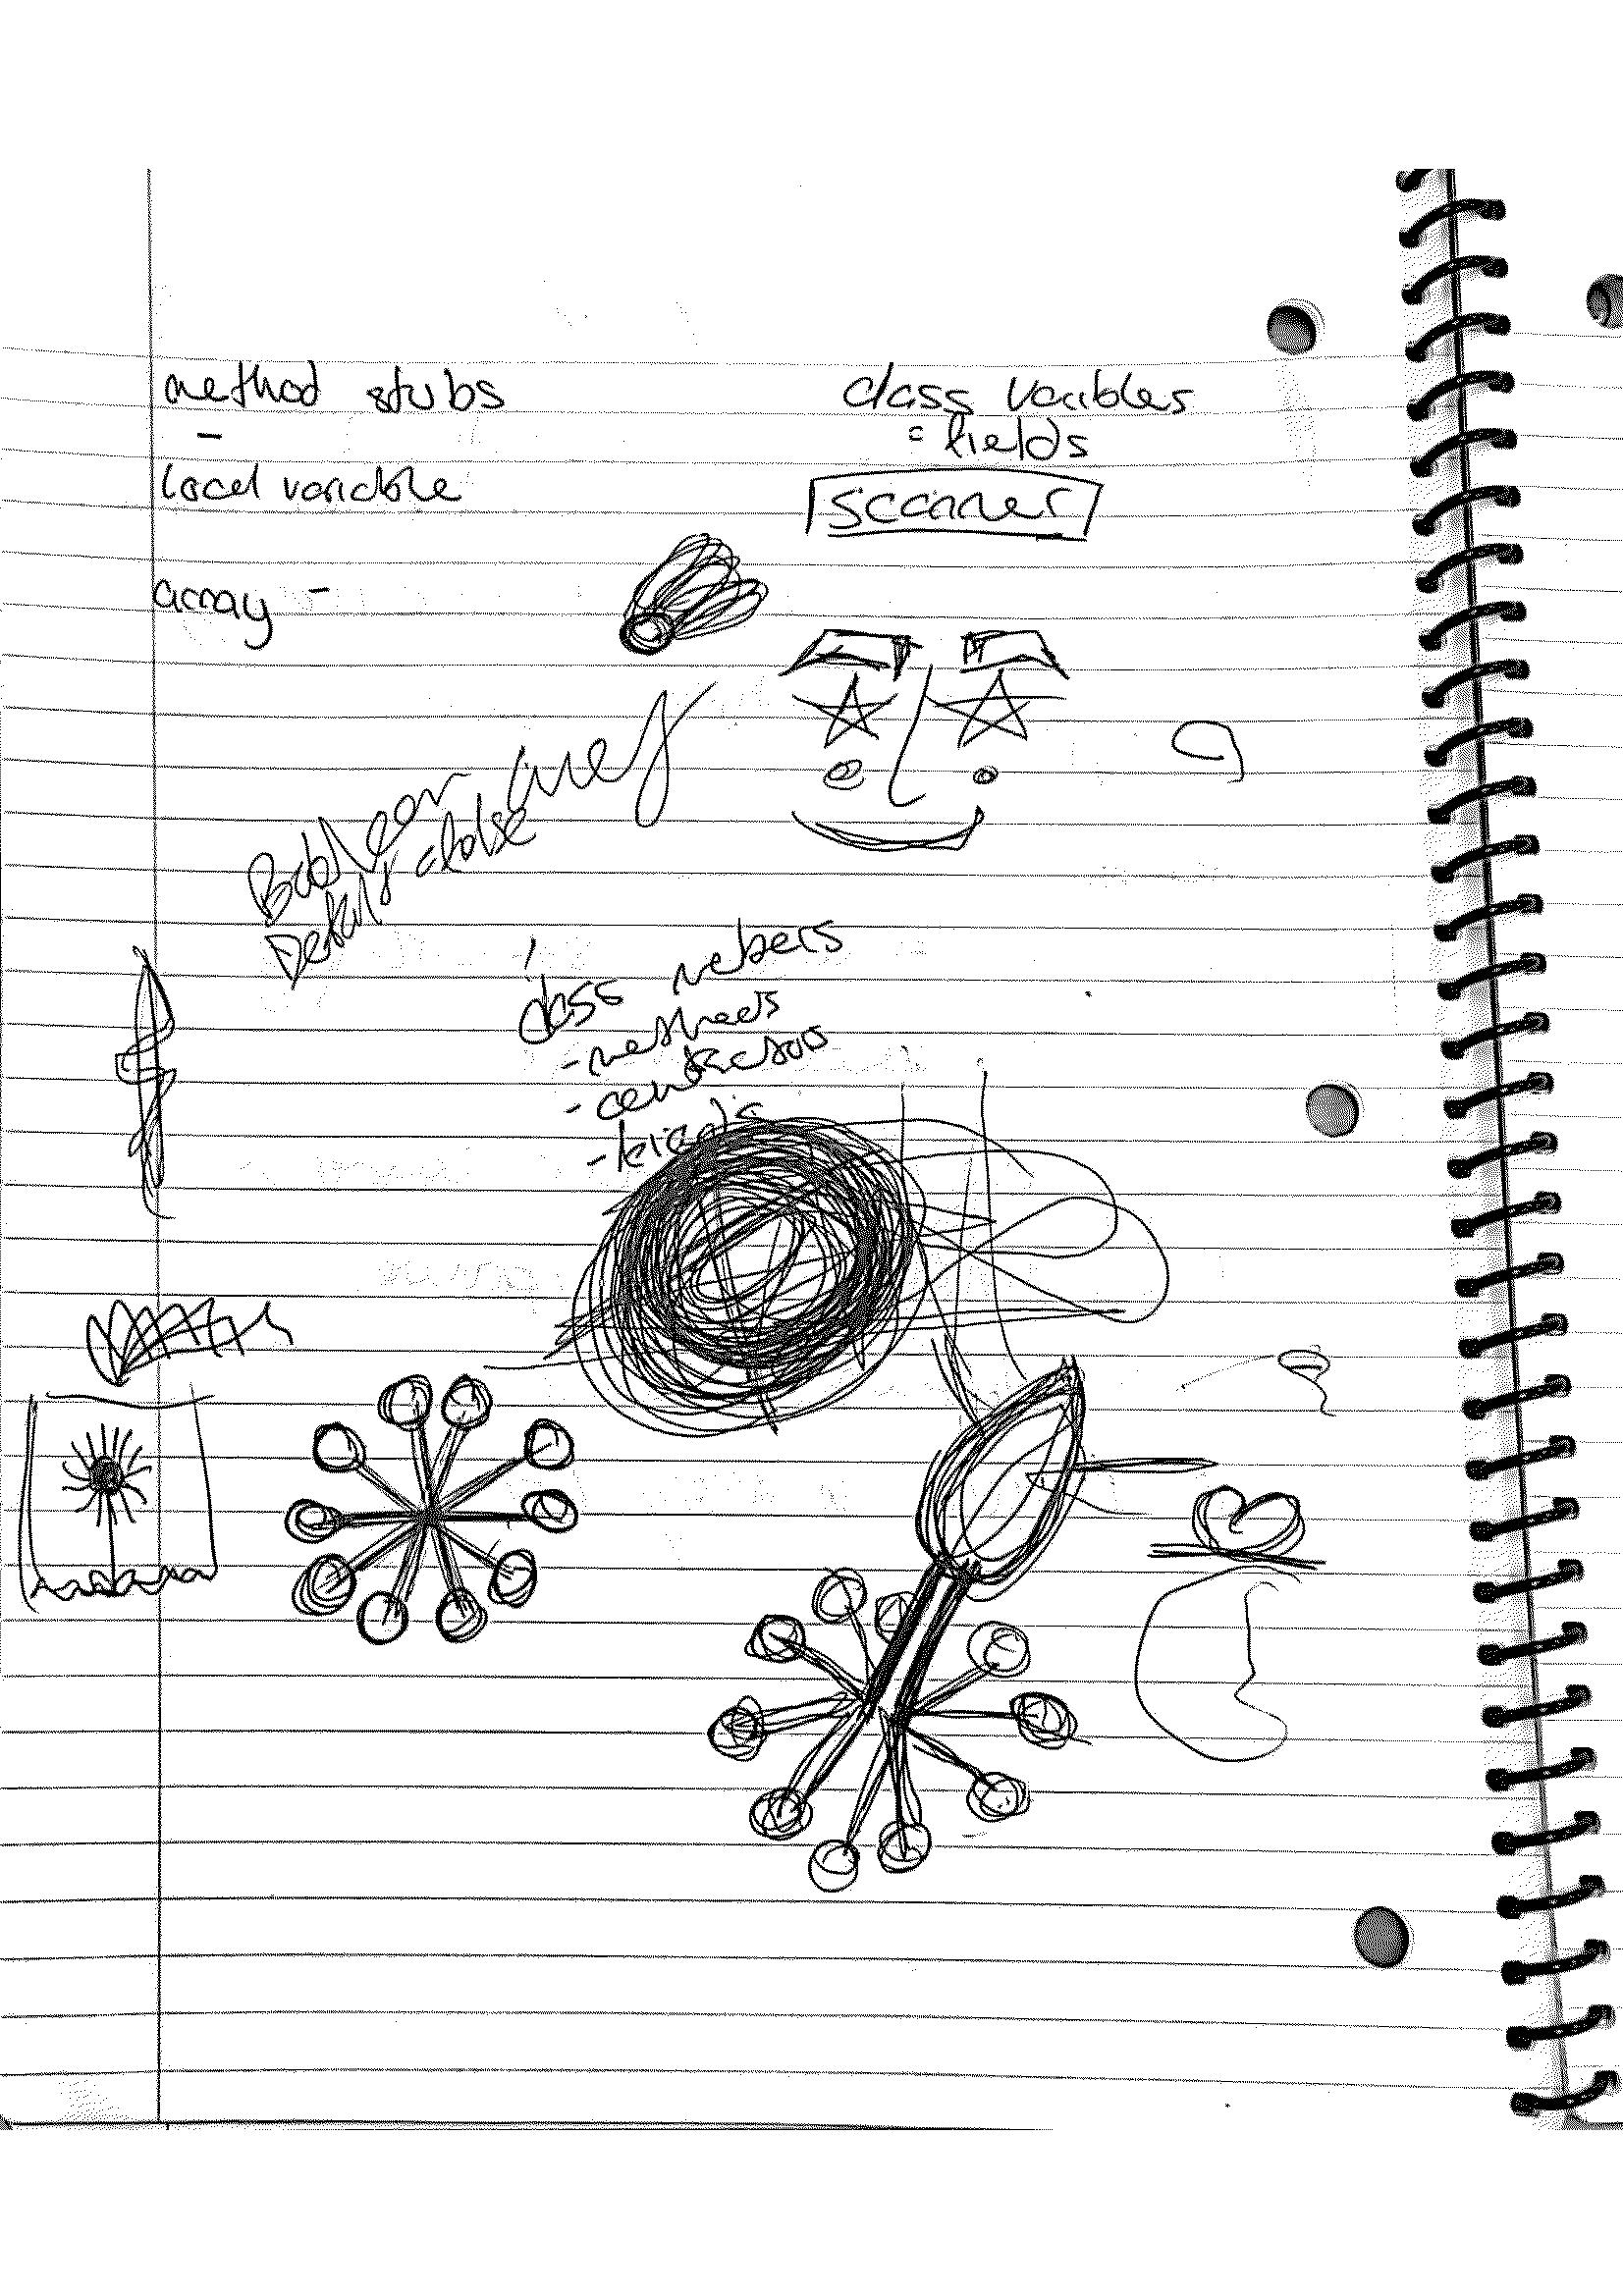 method stubs
-
local variable
array -
class variables
= fields
scanner
Boolean array
Default false
class mebers
- metheds
-
- fields